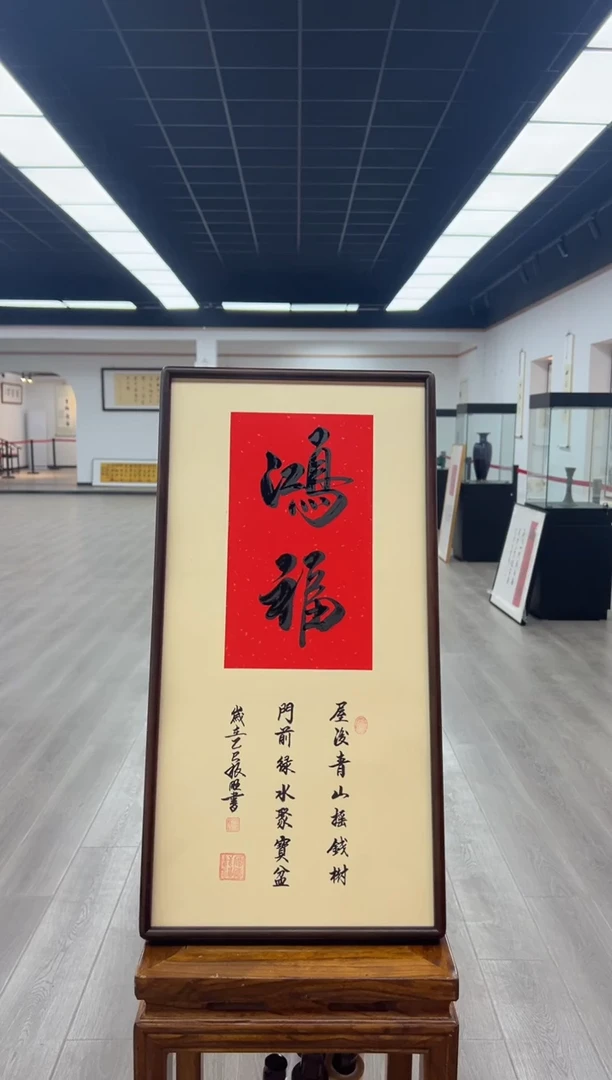 鴻福
屋後青山搖錢樹
門前綠水聚寶盆
歲在乙巳振書